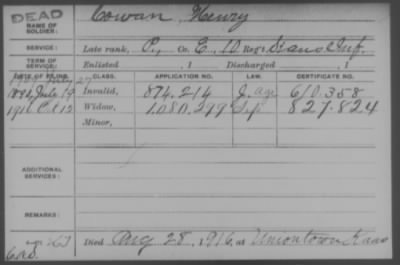 DEAD
NAME OF SOLDIER: Cowan, Henry
SERVICE: Late rank, P., Co. E, 10 Reg't Kans Inf.
TERM OF SERVICE: Enlisted , 1 Discharged , 1
DATE OF FILING. CLASS. APPLICATION NO. LAW. CERTIFICATE NO.
July 19 Invalid, 874.214 J. 610.358
1916 Oct 12 Widow, 1.080.299 827.824
Minor,
ADDITIONAL SERVICES:
REMARKS:
Died Aug 28, 1916, at Uniontown Kans